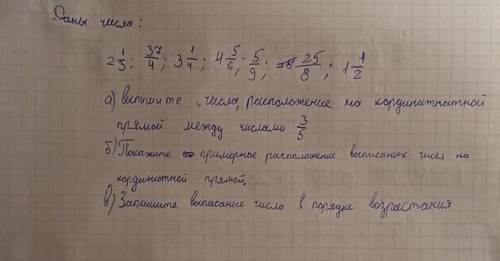 Даны числа:
2 1/3; 37/4; 3 1/4; 4 5/6; 5/9; 25/8; 1 1/2
а) выпишите числа, расположение на кординатнатной
прямой между числами 3/5
б) Покажите примерное расположение выписаных чисел на
кординатной прямой.
в) Запишите выписаные числа в порядке возрастания